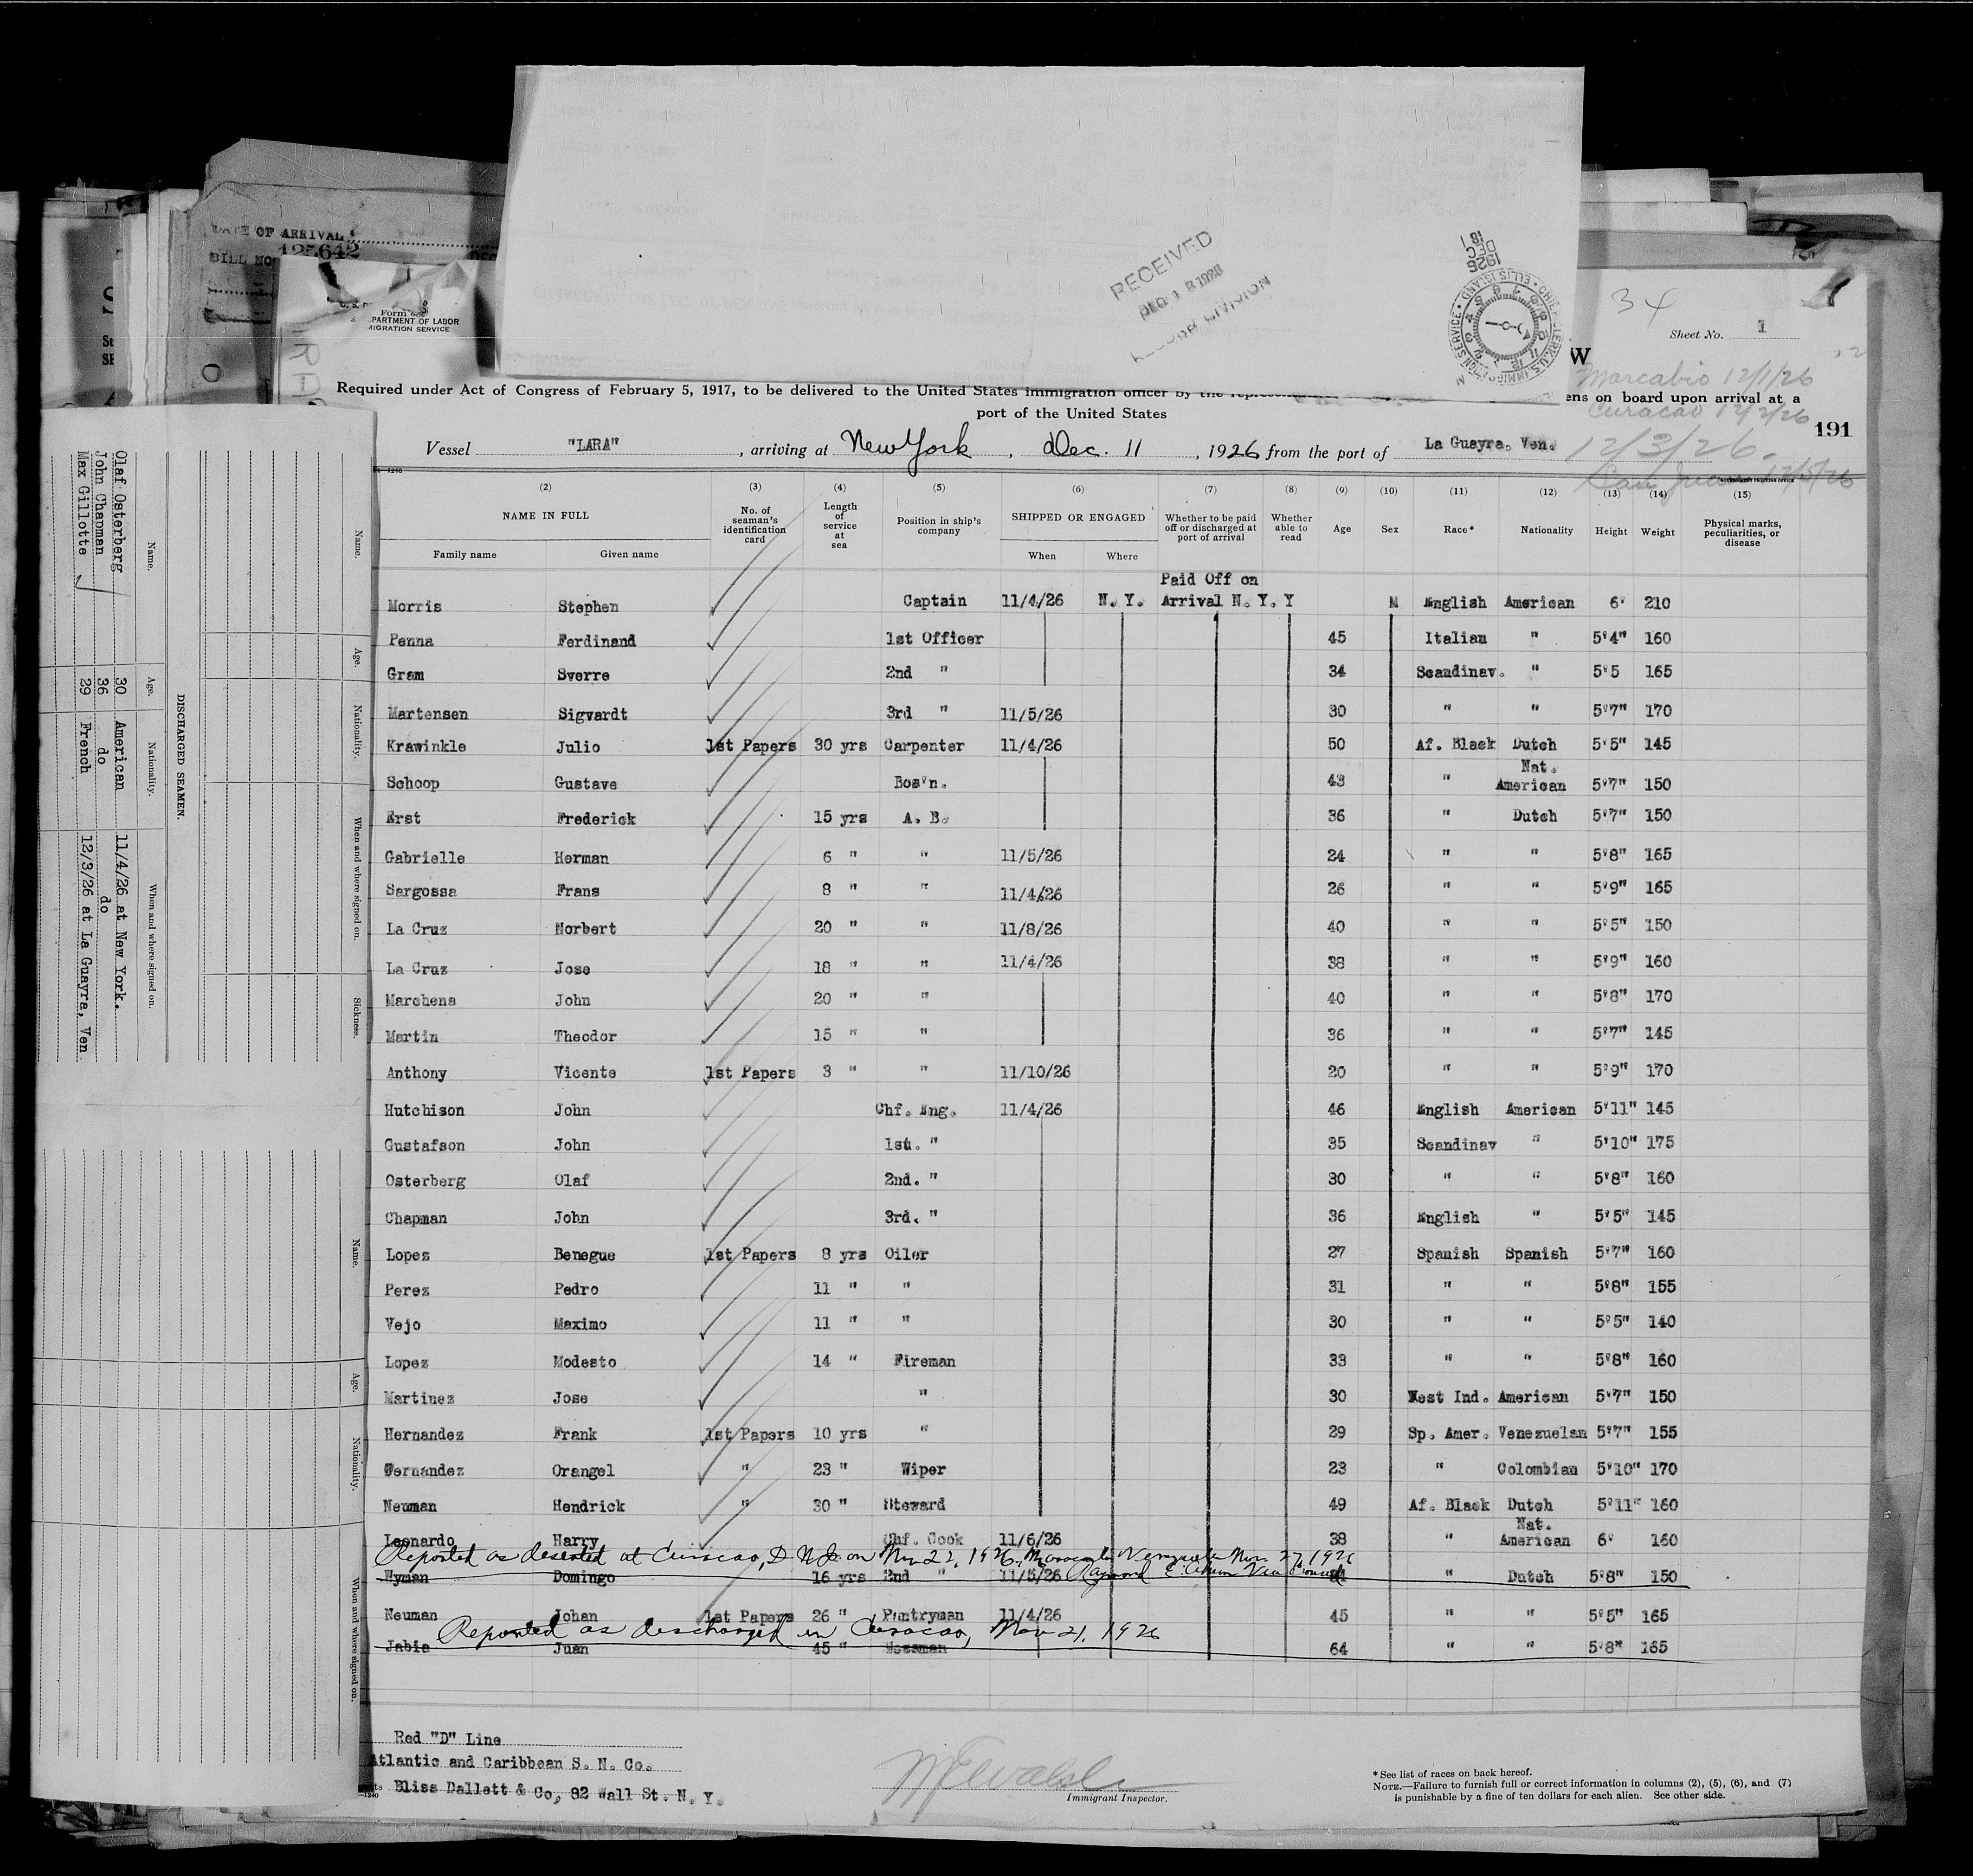 DATE OF ARRIVAL
BILL NO 125642
Form 680
DEPARTMENT OF LABOR
IMMIGRATION SERVICE
RECEIVED
DEC 18 1926
RECORD DIVISION
1926
DEC
18
CHIEF CLERK, U.S. IMMIGRATION SERVICE ELLIS ISLAND
34
Sheet No. 1
W
Required under Act of Congress of February 5, 1917, to be delivered to the United States immigration officer by the
ens on board upon arrival at a
port of the United States
Marcabio 12/1/26
Curacao 12/2/26
191
Vessel "LARA", arriving at New York, Dec. 11, 1926 from the port of La Guayra, Ven. 12/3/26.
San Juan 12/5/26
(2) (3) (4) (5) (6) (7) (8) (9) (10) (11) (12) (13) (14) (15)
NAME IN FULL No. of seaman's identification card Length of service at sea Position in ship's company SHIPPED OR ENGAGED Whether to be paid off or discharged at port of arrival Whether able to read Age Sex Race* Nationality Height Weight Physical marks, peculiarities, or disease
Family name Given name When Where
Paid Off on
Morris Stephen Captain 11/4/26 N. Y. Arrival N. Y. Y M English American 6' 210
Penna Ferdinand 1st Officer 45 Italian " 5'4" 160
Gram Sverre 2nd " 34 Scandinav. " 5'5 165
Martensen Sigvardt 3rd " 11/5/26 30 " " 5'7" 170
Krawinkle Julio 1st Papers 30 yrs Carpenter 11/4/26 50 Af. Black Dutch 5'5" 145
Nat.
Schoop Gustave Bos'n. 43 " American 5'7" 150
Erst Frederick 15 yrs A. B. 36 " Dutch 5'7" 150
Gabrielle Herman 6 " " 11/5/26 24 " " 5'8" 165
Sargossa Frans 8 " " 11/4/26 26 " " 5'9" 165
La Cruz Norbert 20 " " 11/8/26 40 " " 5'5" 150
La Cruz Jose 18 " " 11/4/26 38 " " 5'9" 160
Marchena John 20 " " 40 " " 5'8" 170
Martin Theodor 15 " " 36 " " 5'7" 145
Anthony Vicente 1st Papers 3 " " 11/10/26 20 " " 5'9" 170
Hutchison John Chf. Eng. 11/4/26 46 English American 5'11" 145
Gustafson John 1st. " 35 Scandinav " 5'10" 175
Osterberg Olaf 2nd. " 30 " " 5'8" 160
Chapman John 3rd. " 36 English " 5'5" 145
Lopez Benegue 1st Papers 8 yrs Oiler 27 Spanish Spanish 5'7" 160
Perez Pedro 11 " " 31 " " 5'8" 155
Vejo Maximo 11 " " 30 " " 5'5" 140
Lopez Modesto 14 " Fireman 33 " " 5'8" 160
Martinez Jose " 30 West Ind. American 5'7" 150
Hernandez Frank 1st Papers 10 yrs " 29 Sp. Amer. Venezuelan 5'7" 155
Fernandez Orangel " 23 " Wiper 23 " Colombian 5'10" 170
Neuman Hendrick " 30 " Steward 49 Af. Black Dutch 5'11" 160
Nat.
Leonardo Harry Chf. Cook 11/6/26 38 " American 6' 160
Reported as deserted at Curacao, D W I on Nov 22, 1926, Maracaibo Venezuela Nov. 27, 1926
Raymond E. Vice Consul
Wyman Domingo 16 yrs 2nd " 11/5/26 " Dutch 5'8" 150
Neuman Johan 1st Papers 26 " Pantryman 11/4/26 45 " " 5'5" 165
Reported as discharged in Curacao, Nov 21, 1926
Jabia Juan 45 " Messman 64 " " 5'8" 165
Red "D" Line
Atlantic and Caribbean S. N. Co.
Bliss Dallett & Co, 82 Wall St. N. Y.
Immigrant Inspector.
* See list of races on back hereof.
NOTE.—Failure to furnish full or correct information in columns (2), (5), (6), and (7)
is punishable by a fine of ten dollars for each alien. See other side.
DISCHARGED SEAMEN.
Name. Age. Nationality. When and where signed on.
Olaf Osterberg 30 American 11/4/26 at New York.
John Chapman 36 do do
Max Gillotte 29 French 12/3/26 at La Guayra, Ven
Name. Age. Nationality. When and where signed on. Sickness.
Name. Age. Nationality. When and where signed on.